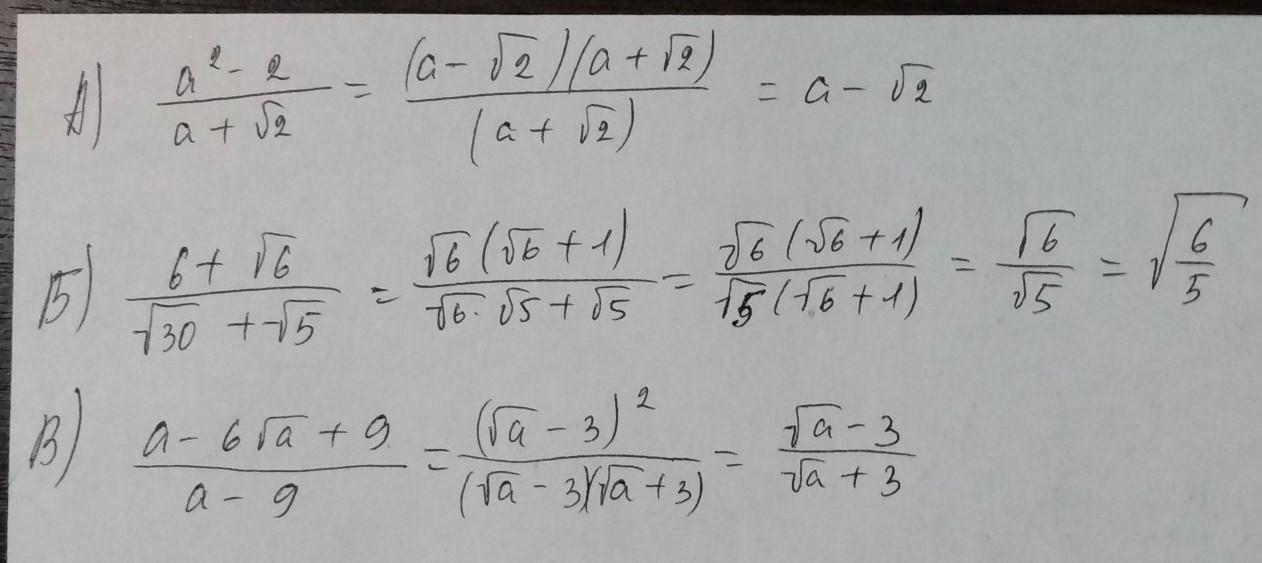 А) (a² - 2)/(a + √2) = ((a - √2)(a + √2))/((a + √2)) = a - √2
Б) (6 + √6)/(√30 + √5) = (√6 (√6 + 1))/(√6 · √5 + √5) = (√6 (√6 + 1))/(√5 (√6 + 1)) = √6/√5 = √(6/5)
В) (a - 6√a + 9)/(a - 9) = (√a - 3)²/((√a - 3)(√a + 3)) = (√a - 3)/(√a + 3)